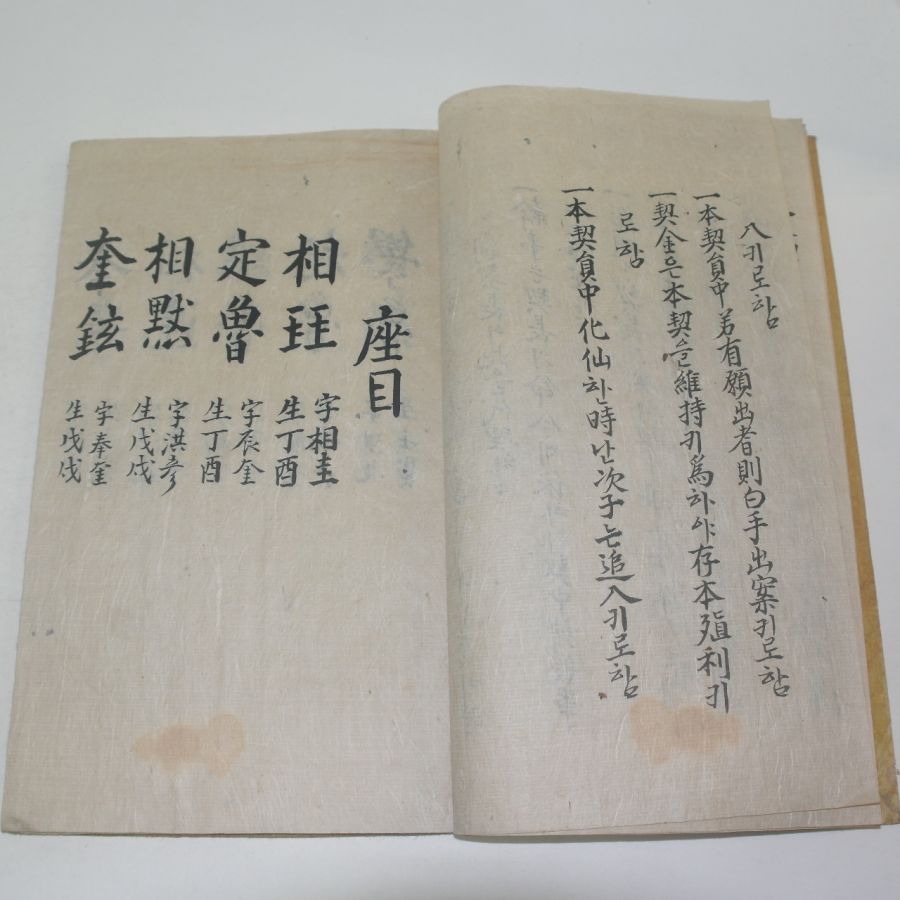 入키로함
一本契員中若有願出者則白手出案키로함
一契金은本契을維持키爲하야存本殖利키
로함
一本契員中化仙한時난次子는追入키로함
座目
相珏
字相圭
生丁酉
定魯
字辰奎
生丁酉
相默
字洪彦
生戊戌
奎鉉
字奉奎
生戊戌